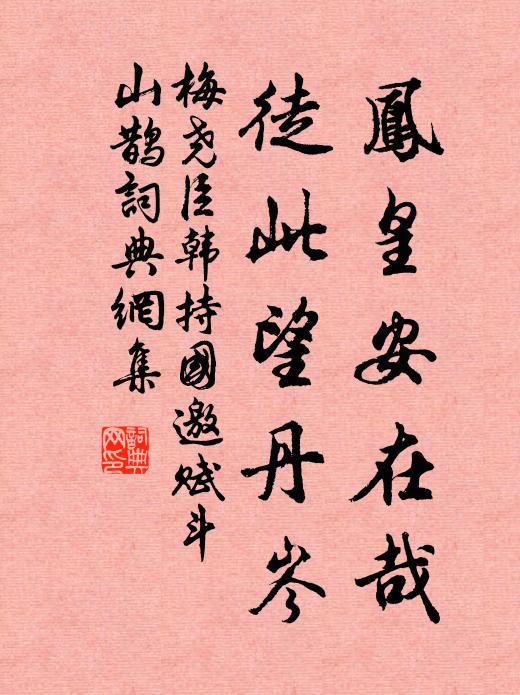 鳳皇安在哉
徒此望丹岑
梅尧臣韩持國邀赋斗
山鹊詞典網集
詞典网印